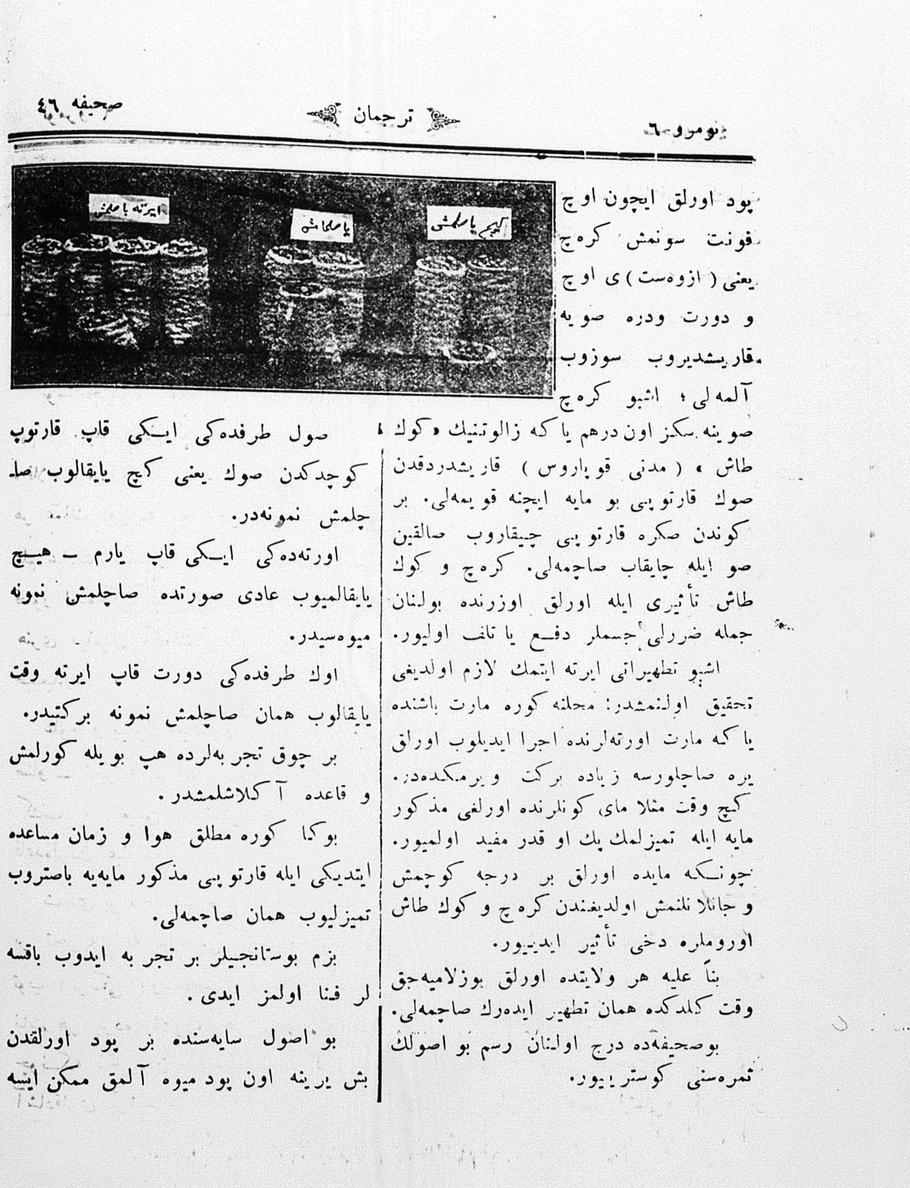 نومرو ٦
ترجمان
صحیفه ٤٦
کچ یاصلمش
یاصلمامش
ایرته یاصلمش
پود اورلق ایچون اوچ
فونت سونمش کره‌چ
یعنی (ازوه‌ست)ی اوچ
و دورت ودره صویه
قاریشدیروب سوزوب
آلمه‌لی؛ اشبو کره‌چ
صوینه سکز اون درهم یاکه زالوتنیك «کوك
طاش» (مدنی قوپاروس) قاریشدردقدن
صوك قارتوپی بو مایه ایچنه قویمه‌لی. بر
کوندن صکره قارتوپی چیقاروب صالقین
صو ایله چایقاب صاچمه‌لی. کره‌چ و کوك
طاش تأثیری ایله اورلق اوزرنده بولنان
جمله ضررلی جسملر دفع یا تلف اولیور.
اشبو تطهیراتی ایرته ایتمك لازم اولدیغی
تحقیق اولنمشدر: محلنه کوره مارت باشنده
یاکه مارت اورته‌لرنده اجرا ایدیلوب اورلق
یره صاچلورسه زیاده برکت ویرمکده‌در.
کیچ وقت مثلا مای کونلرنده اورلغی مذکور
مایه ایله تمیزلمك پك او قدر مفید اولمیور.
چونکه مایده اورلق بر درجه کوچمش
و جانلانلنمش اولدیغندن کره‌چ و کوك طاش
اوروملره دخی تأثیر ایدییور.
بناً علیه هر ولایتده اورلق بوزلامیه‌جق
وقت کلدکده همان تطهیر ایده‌رك صاچمه‌لی.
بوصحیفه‌ده درج اولنان رسم بو اصولك
ثمره‌سنی کوسترییور.
صول طرفده‌کی ایکی قاپ قارتوپ
کوچدکدن صوك یعنی کیچ یایقالوب صا-
چلمش نمونه‌در.
اورته‌ده‌کی ایکی قاپ یارم – هیچ
یایقالمیوب عادی صورتده صاچلمش نمونه
میوه‌سیدر.
اوك طرفده‌کی دورت قاپ ایرته وقت
یایقالوب همان صاچلمش نمونه برکتیدر.
بر چوق تجربه‌لرده هپ بویله کورلمش
و قاعده آکلاشلمشدر.
بوکا کوره مطلق هوا و زمان مساعده
ایتدیکی ایله قارتوپی مذکور مایه‌یه باصتروب
تمیزلیوب همان صاچمه‌لی.
بزم بوستانجیلر بر تجربه ایدوب باقسه
لر فنا اولمز ایدی.
بو اصول سایه‌سنده بر پود اورلقدن
بش یرینه اون پود میوه آلمق ممکن ایسه